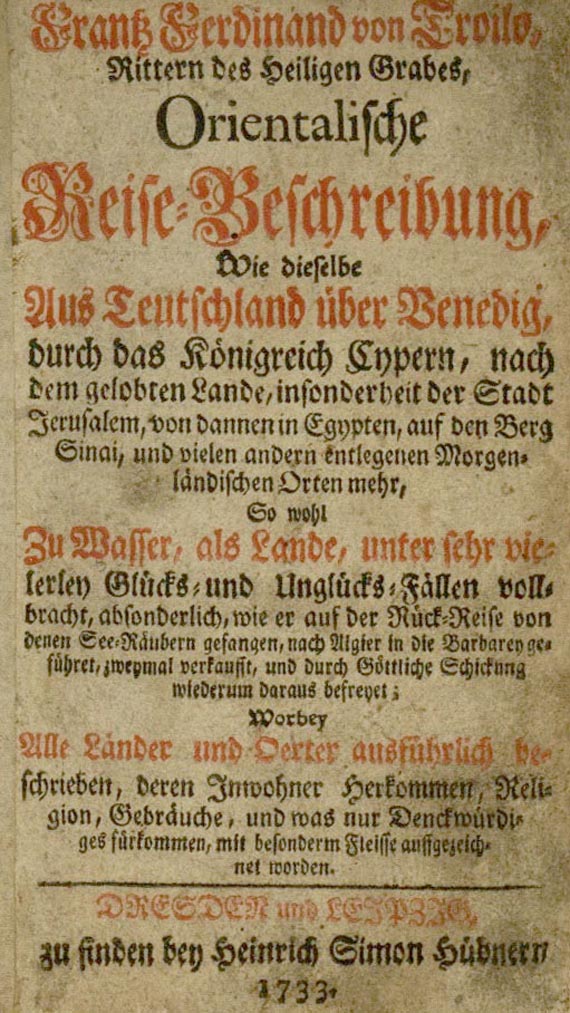 Frantz Ferdinand von Troilo,
Rittern des Heiligen Grabes,
Orientalische
Reise-Beschreibung,
Wie dieselbe
Aus Teutschland über Venedig,
durch das Königreich Cypern, nach
dem gelobten Lande, insonderheit der Stadt
Jerusalem, von dannen in Egypten, auf den Berg
Sinai, und vielen andern entlegenen Morgen-
ländischen Orten mehr,
So wohl
Zu Wasser, als Lande, unter sehr vie-
lerley Glücks- und Unglücks-Fällen voll-
bracht, absonderlich, wie er auf der Rück-Reise von
denen See-Räubern gefangen, nach Algier in die Barbarey ge-
führet, zweymal verkaufft, und durch Göttliche Schickung
wiederum daraus befreyet;
Worbey
Alle Länder und Oerter ausführlich be-
schrieben, deren Inwohner Herkommen, Reli-
gion, Gebräuche, und was nur Denckwürdi-
ges fürkommen, mit besonderm Fleisse auffgezeich-
net worden.
DRESDEN und LEIPZIG,
zu finden bey Heinrich Simon Hübnern
1733.